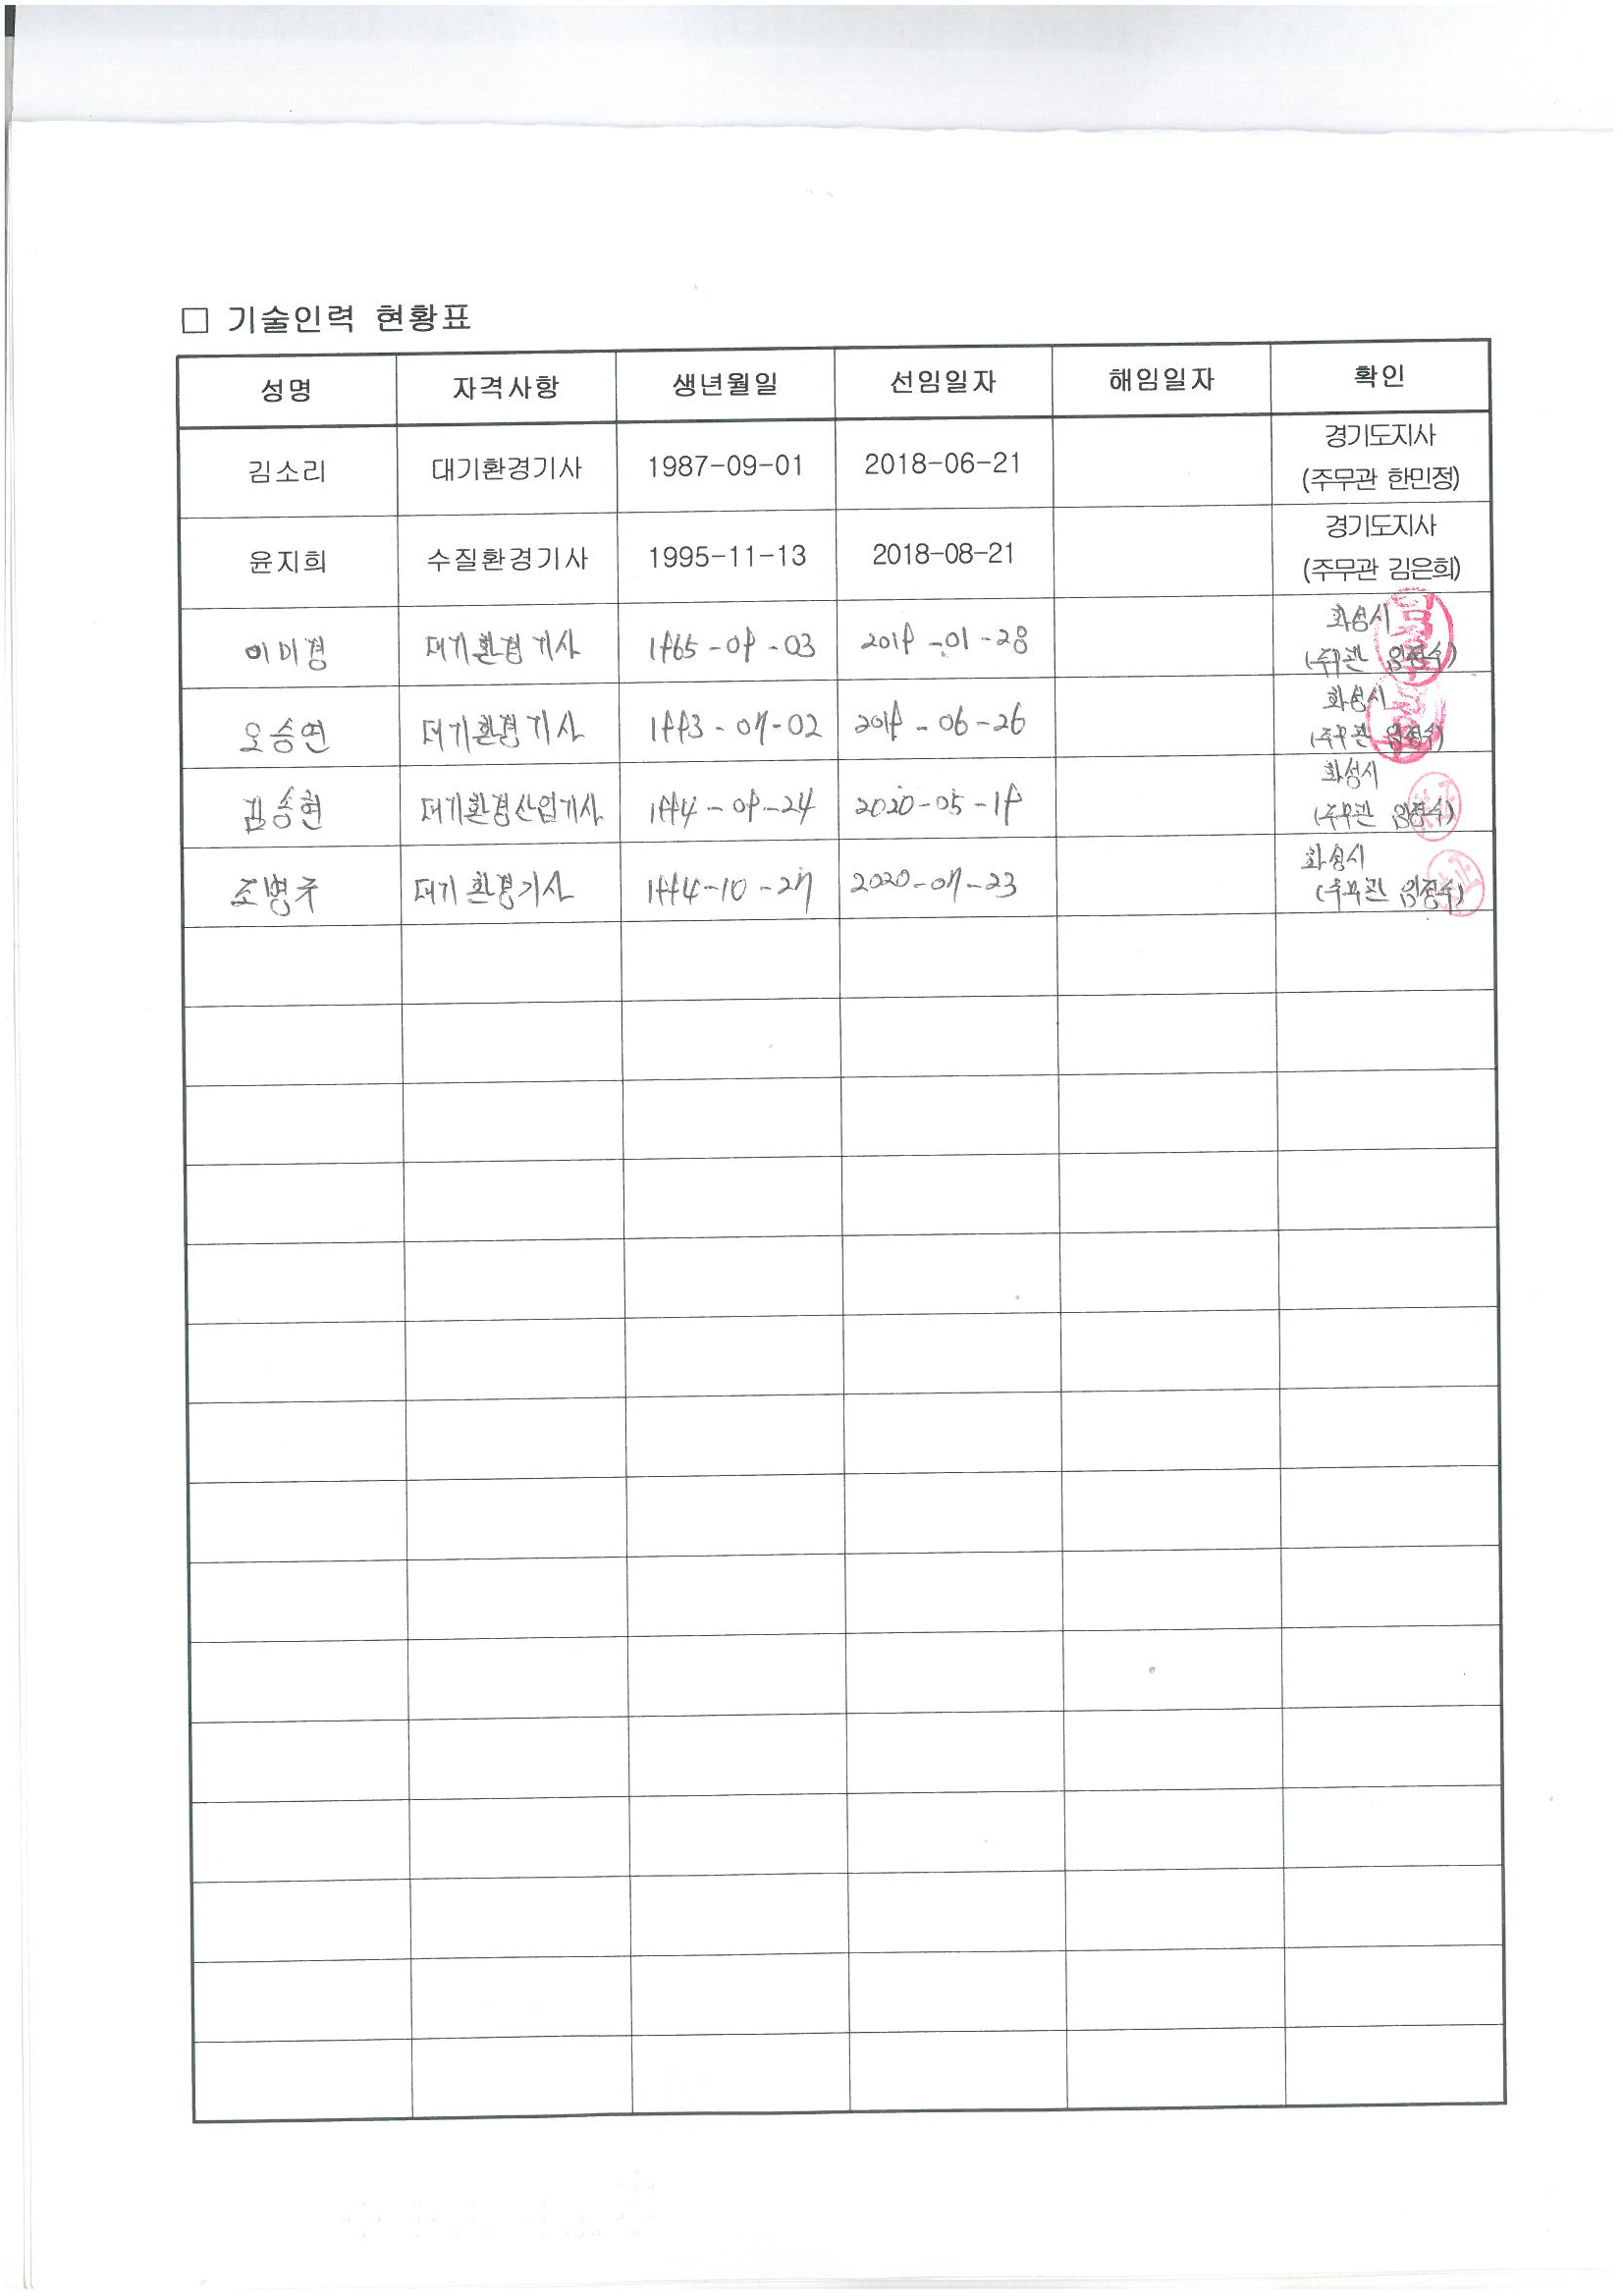 □ 기술인력 현황표
성명 자격사항 생년월일 선임일자 해임일자 확인
김소리 대기환경기사 1987-09-01 2018-06-21 경기도지사
(주무관 한민정)
윤지희 수질환경기사 1995-11-13 2018-08-21 경기도지사
(주무관 김은희)
이미경 대기환경기사 1965-09-03 2019-01-28 화성시
(주무관 임정수)
오승연 대기환경기사 1993-07-02 2019-06-26 화성시
(주무관 임정수)
김송현 대기환경산업기사 1994-09-24 2020-05-19 화성시
(주무관 임정수)
조병주 대기환경기사 1994-10-27 2020-07-23 화성시
(주무관 임정수)